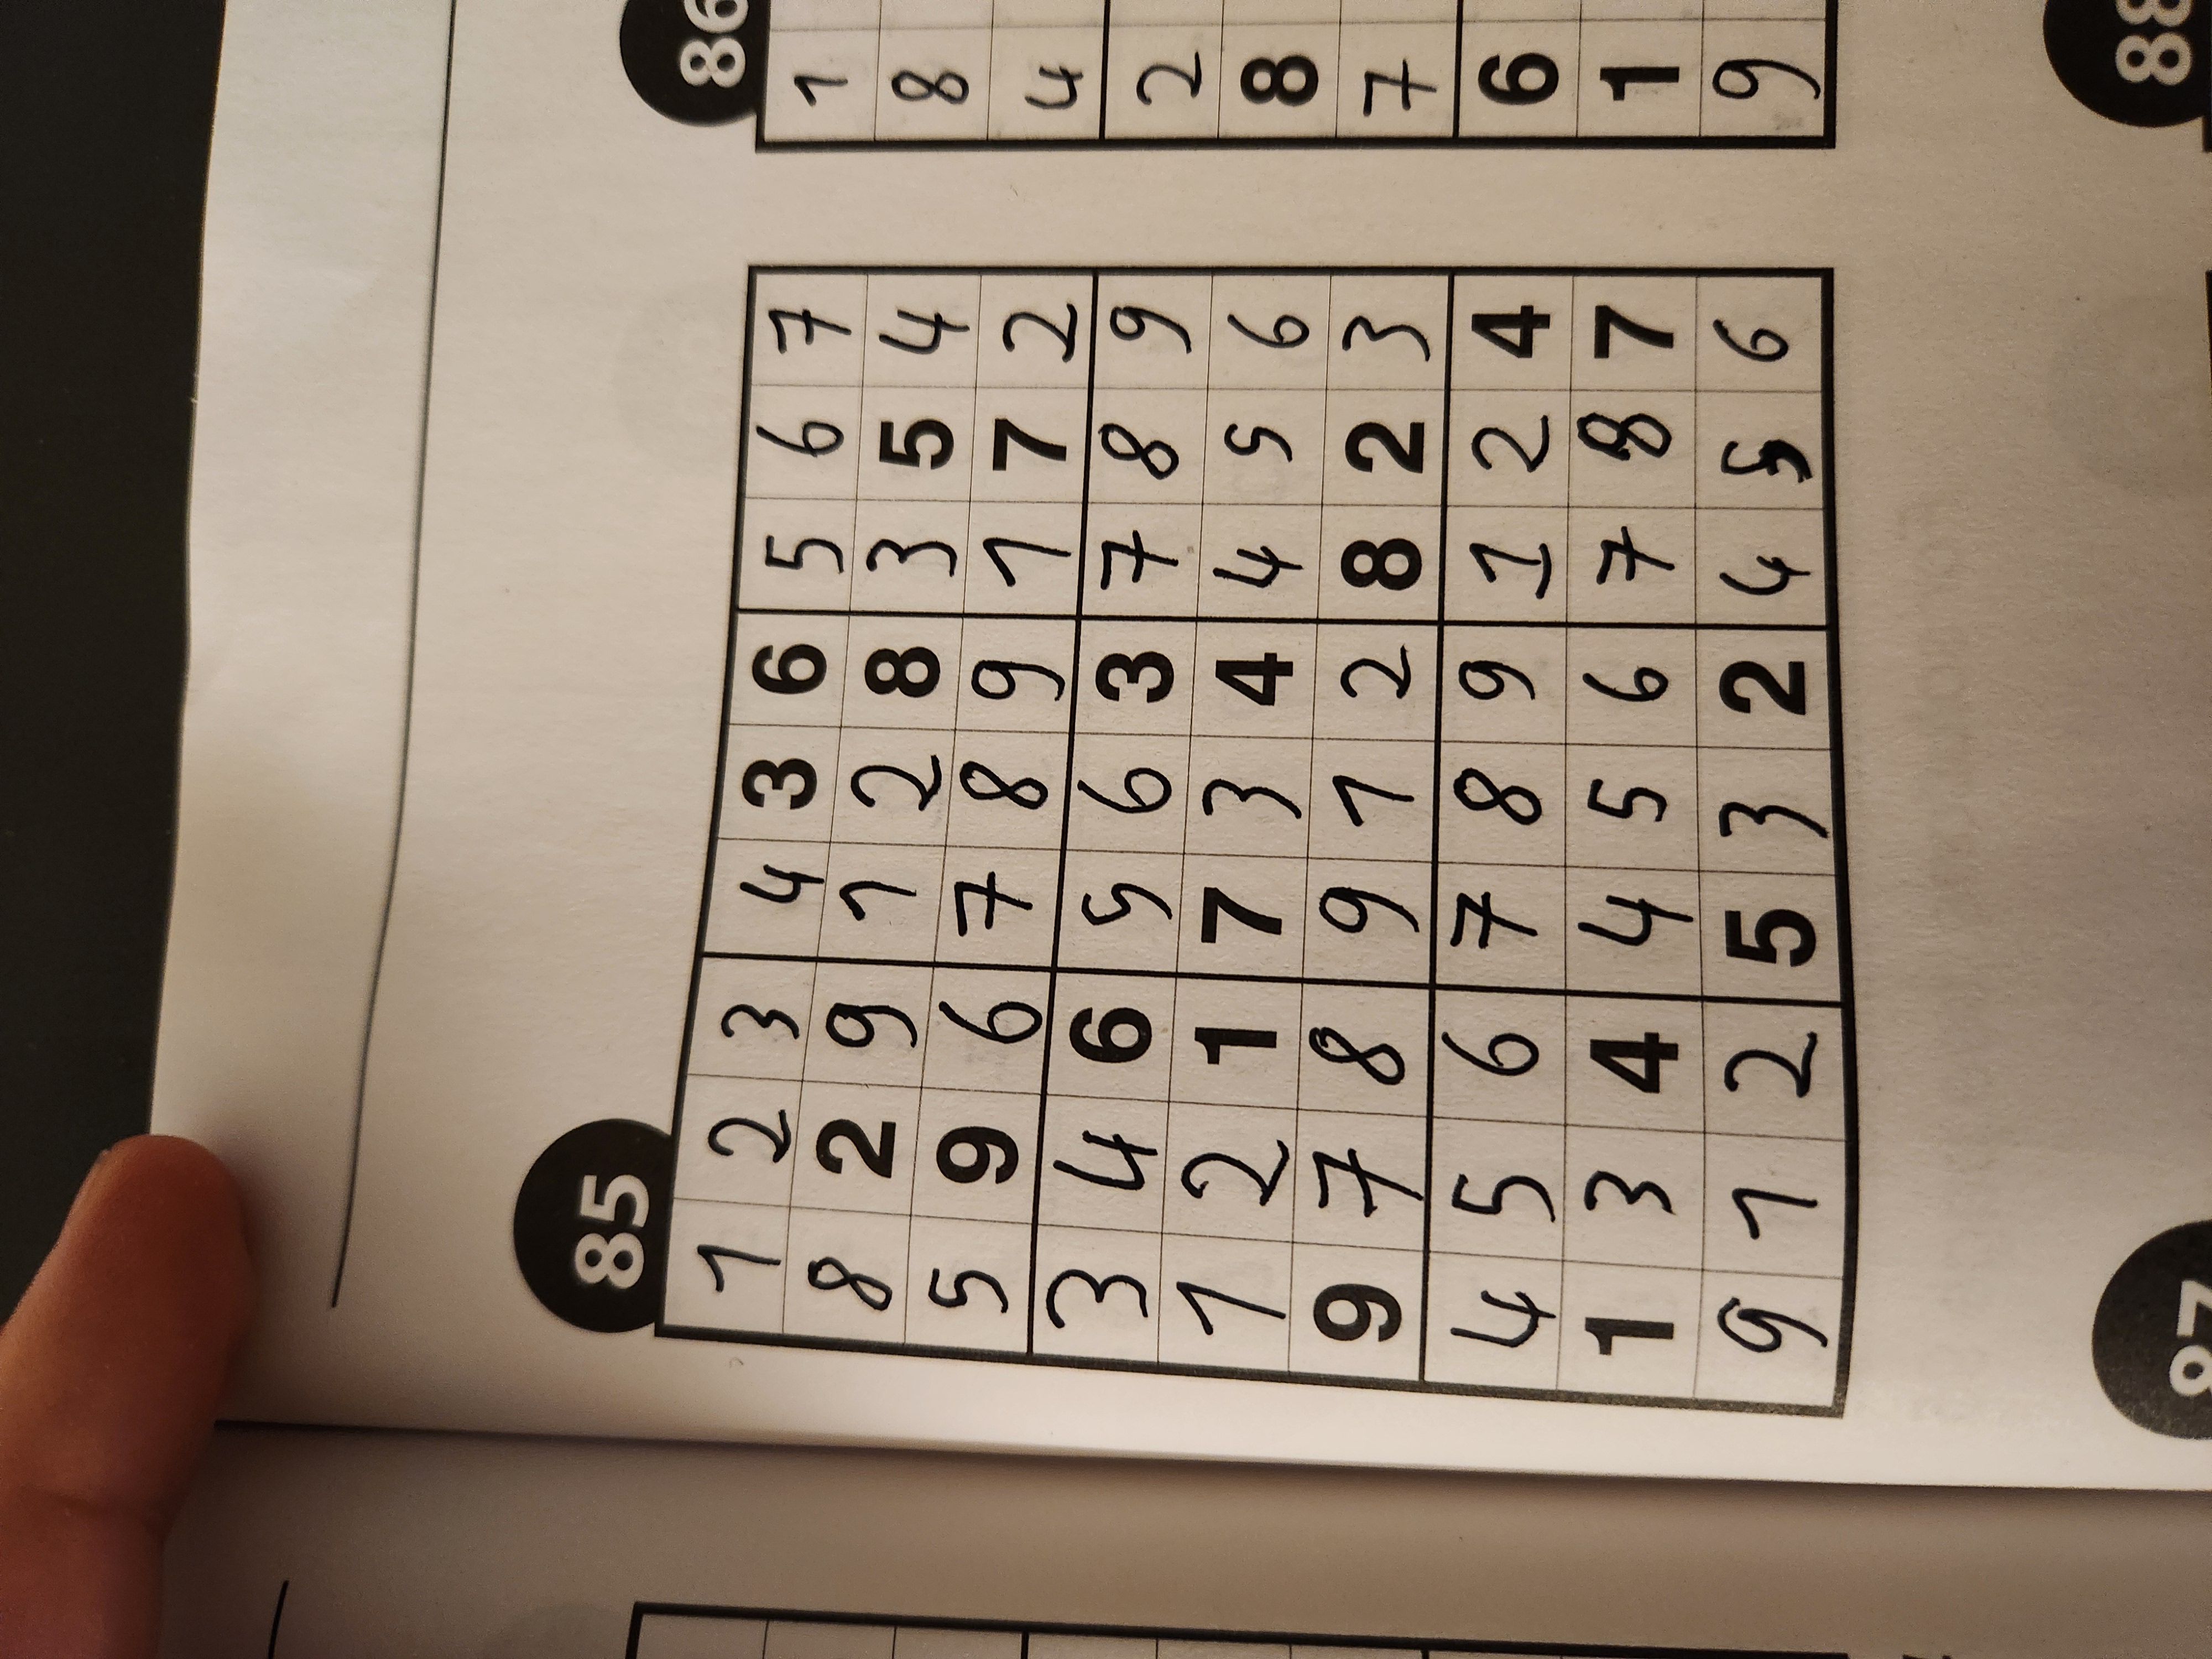 85
1 2 3 4 3 6 5 6 7
8 2 9 1 2 8 3 5 4
5 9 6 7 8 9 1 7 2
3 4 6 5 6 3 7 8 9
1 2 1 7 3 4 4 5 6
9 7 8 9 1 2 8 2 3
4 5 6 7 8 9 1 2 4
1 3 4 4 5 6 7 8 7
9 1 2 5 3 2 4 5 6
86
1
8
4
2
8
7
6
1
9
87
88